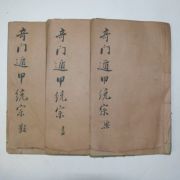 奇门遁甲統宗
奇门遁甲統宗
奇门遁甲統宗